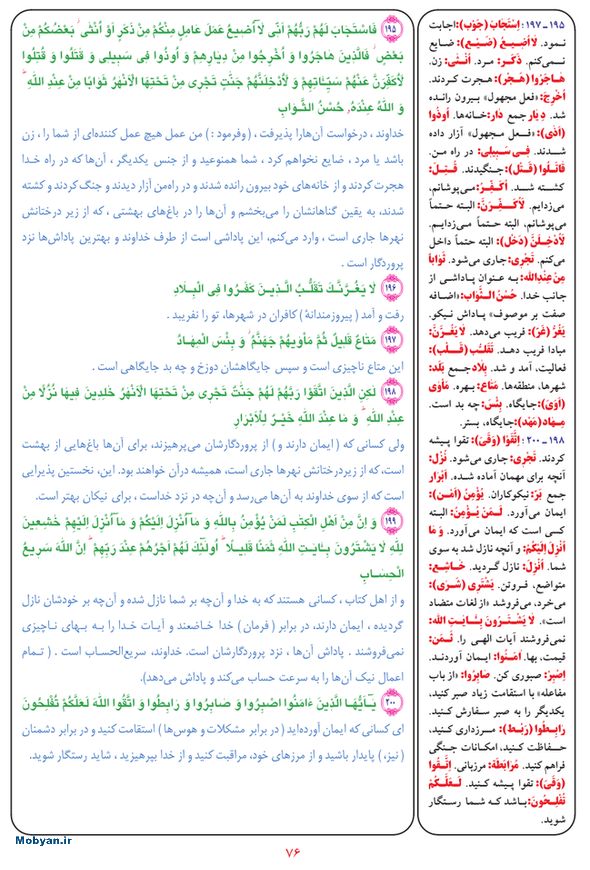 ۱۹۵ـ۱۹۷: اِسْتَجابَ (جَوْب): اجابت
نمود. لا اُضیعُ (ضَیْع): ضایع
نمی‌کنم. ذَکَر: مرد. اُنْثی: زن.
هاجَرُوا (هَجْر): هجرت کردند.
اُخْرِجَ: «فعل مجهول» بیرون رانده
شد. دِیار جمع دار: خانه‌ها. اُوذُوا
(اَذْی): «فعل مجهول» آزار داده
شدند. فی سَبیلی: در راه من.
قاتَلُوا (قَتْل): جنگیدند. قُتِلَ:
کشته شد. اُکَفِّرُ: می‌پوشانم،
می‌زدایم. لَاُکَفِّرَنَّ: البته حتماً
می‌پوشانم، البته حتماً می‌زدایم.
لَاُدْخِلَنَّ (دَخْل): البته حتماً داخل
می‌کنم. تَجْری: جاری می‌شود. ثَواباً
مِنْ عِنْدِاللهِ: به عنوان پاداشی از
جانب خدا. حُسْنُ الثَّوابِ: «اضافه
صفت بر موصوف» پاداش نیکو.
یَغُرُّ (غَرّ): فریب می‌دهد. لا یَغُرَّنَّ:
مبادا فریب دهد. تَقَلُّب (قَلْب):
فعالیت، آمد و شد. بِلاد جمع بَلَد:
شهرها، منطقه‌ها. مَتاع: بهره. مَأوی
(اَوْی): جایگاه. بِئْسَ: چه بد است.
مِهاد (مَهْد): جایگاه، بستر.
۱۹۸ـ۲۰۰: اِتَّقَوْا (وَقْی): تقوا پیشه
کردند. تَجْری: جاری می‌شود. نُزُل:
آنچه برای مهمان آماده شده. اَبْرار
جمع بَرّ: نیکوکاران. یُؤْمِنُ (اَمْن):
ایمان می‌آورد. لَمَنْ یُؤْمِنُ: البته
کسی است که ایمان می‌آورد. وَ ما
اُنْزِلَ اِلَیْکُمْ: و آنچه نازل شد به سوی
شما. اُنْزِلَ: نازل گردید. خاشِع:
متواضع، فروتن. یَشْتَری (شَرْی):
می‌خرد، می‌فروشد «از لغات متضاد
است». لا یَشْتَرُونَ بِآیاتِ اللهِ:
نمی‌فروشند آیات الهی را. ثَمَن:
قیمت، بها. آمَنُوا: ایمان آوردند.
اِصْبِرْ: صبوری کن. صابِرُوا: «از باب
مفاعله» با استقامت زیاد صبر کنید،
یکدیگر را به صبر سفارش کنید.
رابِطُوا (رَبْط): مرزداری کنید،
حفاظت کنید، امکانات جنگی
فراهم کنید. مُرابَطَة: مرزبانی. اِتَّقُوا
(وَقْی): تقوا پیشه کنید. لَعَلَّکُمْ
تُفْلِحُونَ: باشد که شما رستگار
شوید.
۱۹۵ فَاسْتَجَابَ لَهُمْ رَبُّهُمْ أَنِّی لَآ أُضِیعُ عَمَلَ عَامِلٍ مِنْکُمْ مِنْ ذَکَرٍ أَوْ أُنْثَى بَعْضُکُمْ مِنْ
بَعْضٍ فَالَّذِینَ هَاجَرُوا وَ أُخْرِجُوا مِنْ دِیَارِهِمْ وَ أُوذُوا فِی سَبِیلِی وَ قَتَلُوا وَ قُتِلُوا
لَأُکَفِّرَنَّ عَنْهُمْ سَیِّئَاتِهِمْ وَ لَأُدْخِلَنَّهُمْ جَنَّتٍ تَجْرِی مِنْ تَحْتِهَا الْأَنْهَرُ ثَوَابًا مِنْ عِنْدِ اللهِ
وَ اللهُ عِنْدَهُ حُسْنُ الثَّوَابِ
خداوند ، درخواست آن‌هارا پذیرفت ، (وفرمود : ) من عمل هیچ عمل کننده‌ای از شما را ، زن
باشد یا مرد ، ضایع نخواهم کرد ، شما همنوعید و از جنس یکدیگر ، آن‌ها که در راه خدا
هجرت کردند و از خانه‌های خود بیرون رانده شدند و در راه‌من آزار دیدند و جنگ کردند و کشته
شدند، به یقین گناهانشان را می‌بخشم و آن‌ها را در باغ‌های بهشتی ، که از زیر درختانش
نهرها جاری است ، وارد می‌کنم، این پاداشی است از طرف خداوند و بهترین پاداش‌ها نزد
پروردگار است .
۱۹۶ لَا یَغُرَّنَّکَ تَقَلُّبُ الَّذِینَ کَفَرُوا فِی الْبِلَادِ
رفت و آمد ( پیروزمندانهٔ ) کافران در شهرها، تو را نفریبد .
۱۹۷ مَتَاعٌ قَلِیلٌ ثُمَّ مَأْوَیهُمْ جَهَنَّمُ وَ بِئْسَ الْمِهَادُ
این متاع ناچیزی است و سپس جایگاهشان دوزخ و چه بد جایگاهی است .
۱۹۸ لَکِنِ الَّذِینَ اتَّقَوْا رَبَّهُمْ لَهُمْ جَنَّتٌ تَجْرِی مِنْ تَحْتِهَا الْأَنْهَرُ خَلِدِینَ فِیهَا نُزُلًا مِنْ
عِنْدِ اللهِ وَ مَا عِنْدَ اللهِ خَیْرٌ لِلْأَبْرَارِ
ولی کسانی که ( ایمان دارند و ) از پروردگارشان می‌پرهیزند، برای آن‌ها باغ‌هایی از بهشت
است، که از زیردرختانش نهرها جاری است، همیشه درآن خواهند بود. این، نخستین پذیرایی
است که از سوی خداوند به آن‌ها می‌رسد و آن‌چه در نزد خداست ، برای نیکان بهتر است.
۱۹۹ وَ إِنَّ مِنْ أَهْلِ الْکِتَبِ لَمَنْ یُؤْمِنُ بِاللهِ وَ مَآ أُنْزِلَ إِلَیْکُمْ وَ مَآ أُنْزِلَ إِلَیْهِمْ خَشِعِینَ
لِلهِ لَا یَشْتَرُونَ بِـَایَتِ اللهِ ثَمَنًا قَلِیلًا أُولَئِکَ لَهُمْ أَجْرُهُمْ عِنْدَ رَبِّهِمْ إِنَّ اللهَ سَرِیعُ
الْحِسَابِ
و از اهل کتاب ، کسانی هستند که به خدا و آن‌چه بر شما نازل شده و آن‌چه بر خودشان نازل
گردیده ، ایمان دارند، در برابر ( فرمان ) خدا خاضعند و آیات خدا را به بهای ناچیزی
نمی‌فروشند . پاداش آن‌ها ، نزد پروردگارشان است. خداوند، سریع‌الحساب است . ( تمام
اعمال نیک آن‌ها را به سرعت حساب می‌کند و پاداش می‌دهد).
۲۰۰ یَـأَیُّهَا الَّذِینَ ءَامَنُوا اصْبِرُوا وَ صَابِرُوا وَ رَابِطُوا وَ اتَّقُوا اللهَ لَعَلَّکُمْ تُفْلِحُونَ
ای کسانی که ایمان آورده‌اید ( در برابر مشکلات و هوس‌ها ) استقامت کنید و در برابر دشمنان
( نیز، ) پایدار باشید و از مرزهای خود، مراقبت کنید و از خدا بپرهیزید ، شاید رستگار شوید.
Mobyan.ir
۷۶